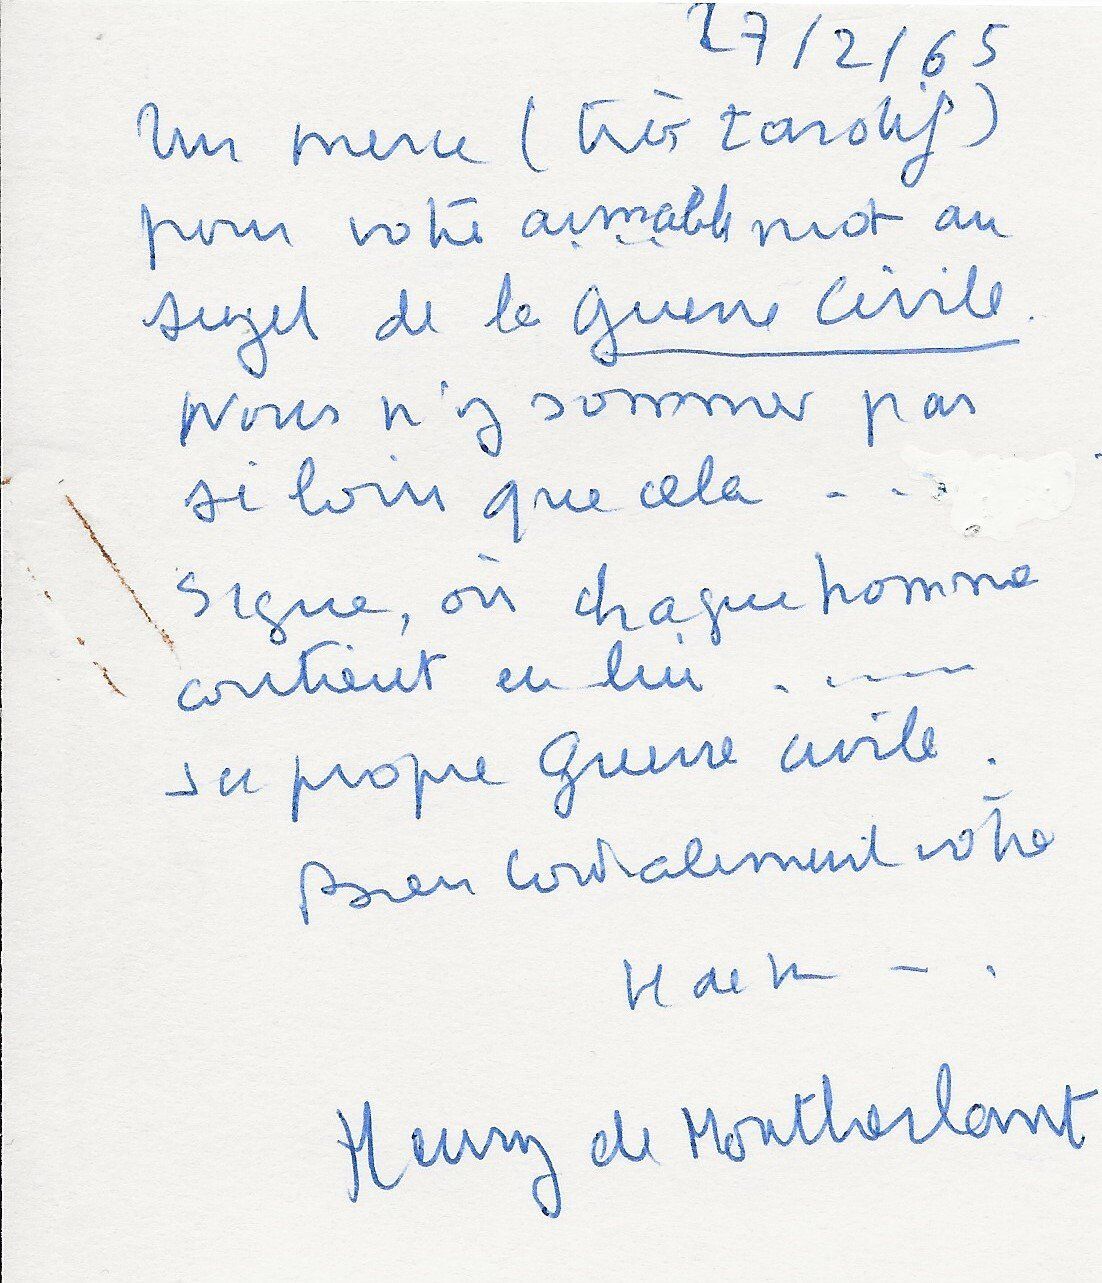 27/2/65
Un merci (très tardif)
pour votre aimable mot au
sujet de la Guerre Civile.
Nous n'y sommes pas
si loin que cela - - -
Signe, où chaque homme
contient en lui . - - -
sa propre Guerre civile.
Bien cordialement vôtre
H de M - .
Henry de Montherlant